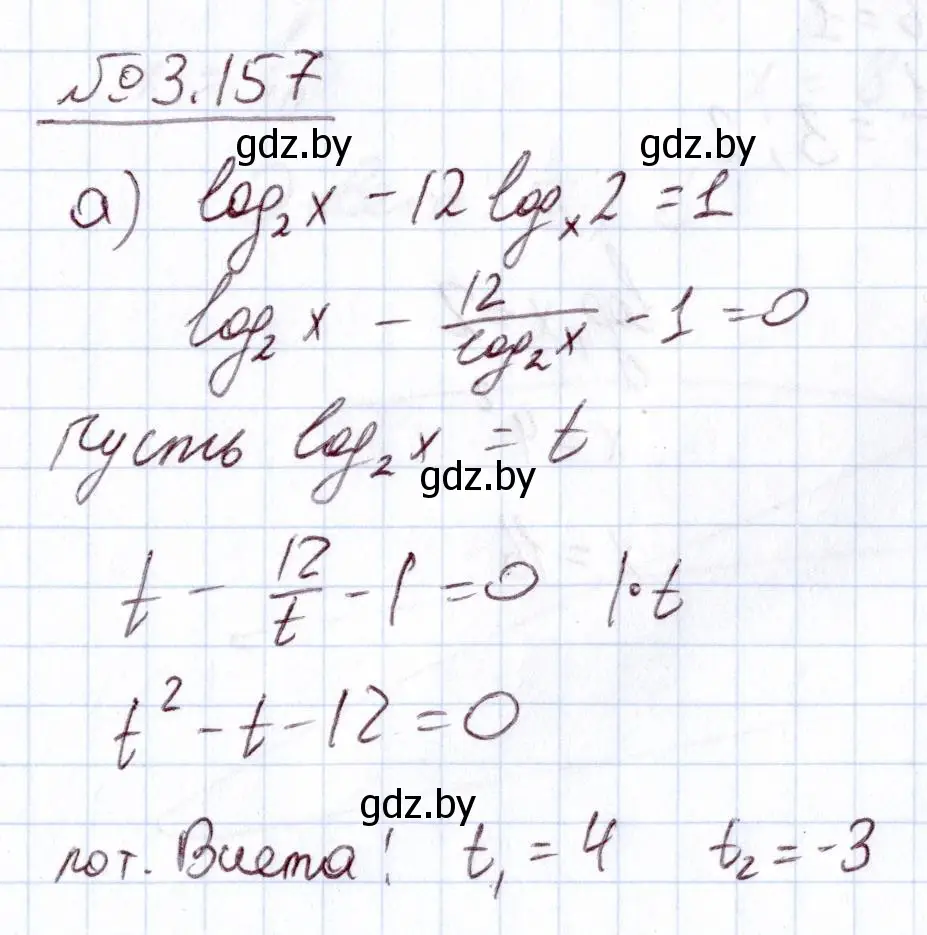 №3.157
gdz.by gdz.by
а) log₂x - 12 logₓ2 = 1
log₂x - 12/log₂x - 1 = 0
Пусть log₂x = t
gdz.by
t - 12/t - 1 = 0 |·t
t² - t - 12 = 0
gdz.by
по т. Виета: t₁ = 4 t₂ = -3